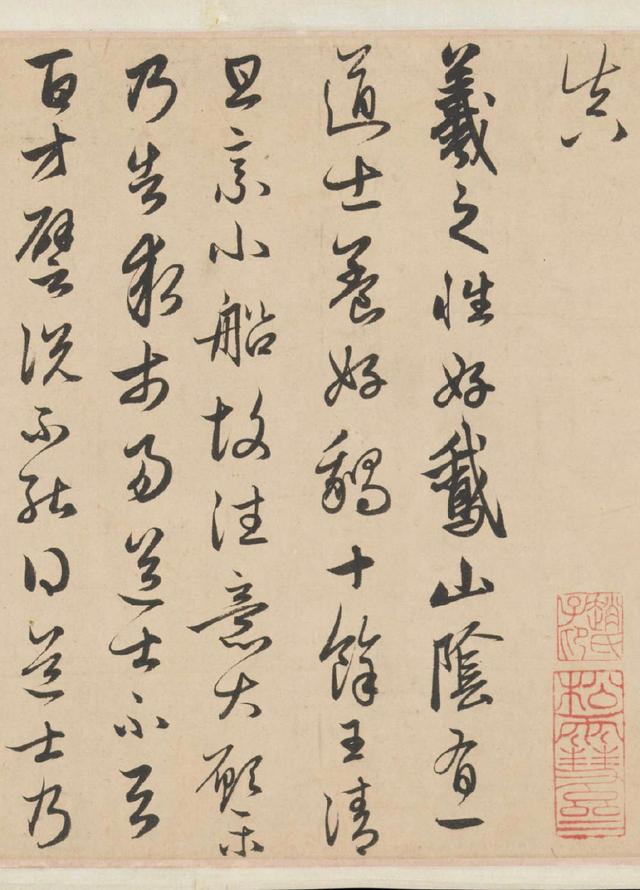 真
羲之性好鵝山陰有一
道士養好鵝十餘王清
旦乘小船故往意大願樂
乃告求市易道士不与
百方譬說不能得道士乃
趙氏子昂
松雪齋